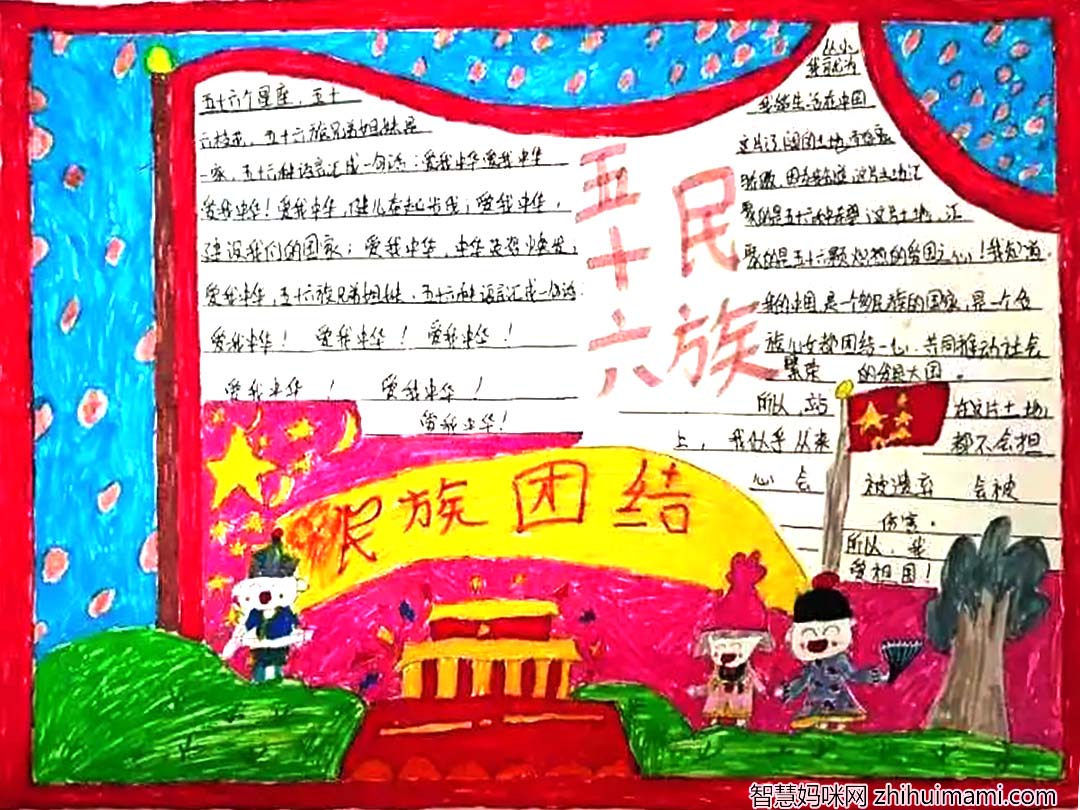 五十六个星座，五十
六枝花，五十六族兄弟姐妹是
一家，五十六种语言汇成一句话：爱我中华爱我中华
爱我中华！爱我中华，健儿奋起步伐；爱我中华，
建设我们的国家；爱我中华，中华英姿焕发；
爱我中华，五十六族兄弟姐妹，五十六种语言汇成一句话
爱我中华！ 爱我中华！ 爱我中华！
爱我中华！ 爱我中华！
爱我中华！
五十六
民族
从小
我可以为
我能生活在中国
骄傲，因为
这片土地汇
聚的是五十六种
这片土地，汇
聚的是五十六颗炽热的爱国之心！我知道，
我的中国，是一个多民族的国家，是一个各
族儿女都团结一心，共同推动社会
繁荣 的 大国。
所以，站 在这片土地
上，我似乎从来 都不会担
心会 被遗弃 会被
伤害。
所以，我
爱祖国！
民族团结
智慧妈咪网 zhihuimami.com